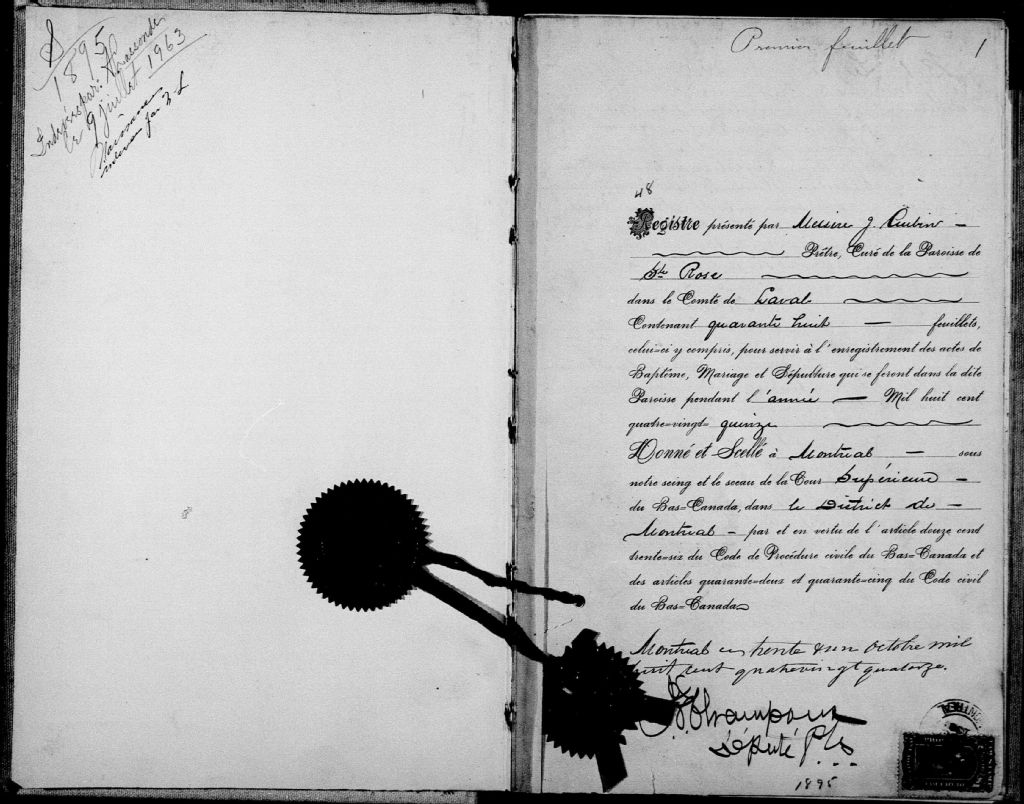 S
1895
le 9 juillet 1963
Premier feuillet
1
48
Registre présenté par Messire J. Aubin
Prêtre, Curé de la Paroisse de
Ste Rose
dans le Comté de Laval
Contenant quarante huit feuillets,
celui-ci y compris, pour servir à l'enregistrement des actes de
Baptême, Mariage et Sépulture qui se feront dans la dite
Paroisse pendant l'année Mil huit cent
quatre=vingt= quinze
Donné et Scellé à Montréal sous
notre seing et le sceau de la Cour Supérieure
du Bas=Canada, dans le District de
Montréal par et en vertu de l'article douze cent
trente=six du Code de Procédure civile du Bas=Canada et
des articles quarante=deux et quarante=cinq du Code civil
du Bas=Canada
Montréal ce trente & un octobre mil
huit cent quatrevingt quatorze.
Député P.C.S.
1895